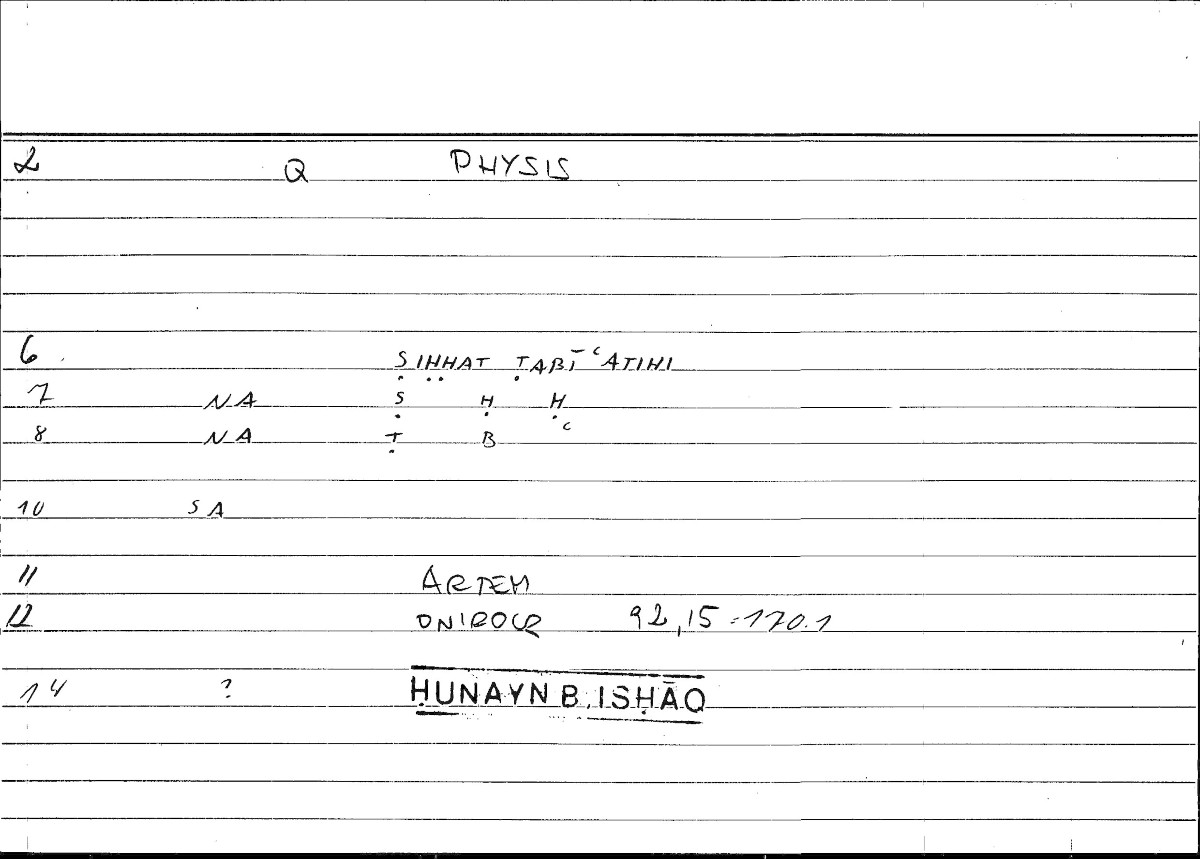 2 Q PHYSIS
6 ṢIḤḤAT ṬABĪʿATIHI
7 NA Ṣ Ḥ Ḥ
8 NA Ṭ B ʿ
10 SA
11 ARTEM
12 ONIROCR 92,15 = 170.1
14 ? ḤUNAYN B. ISḤĀQ